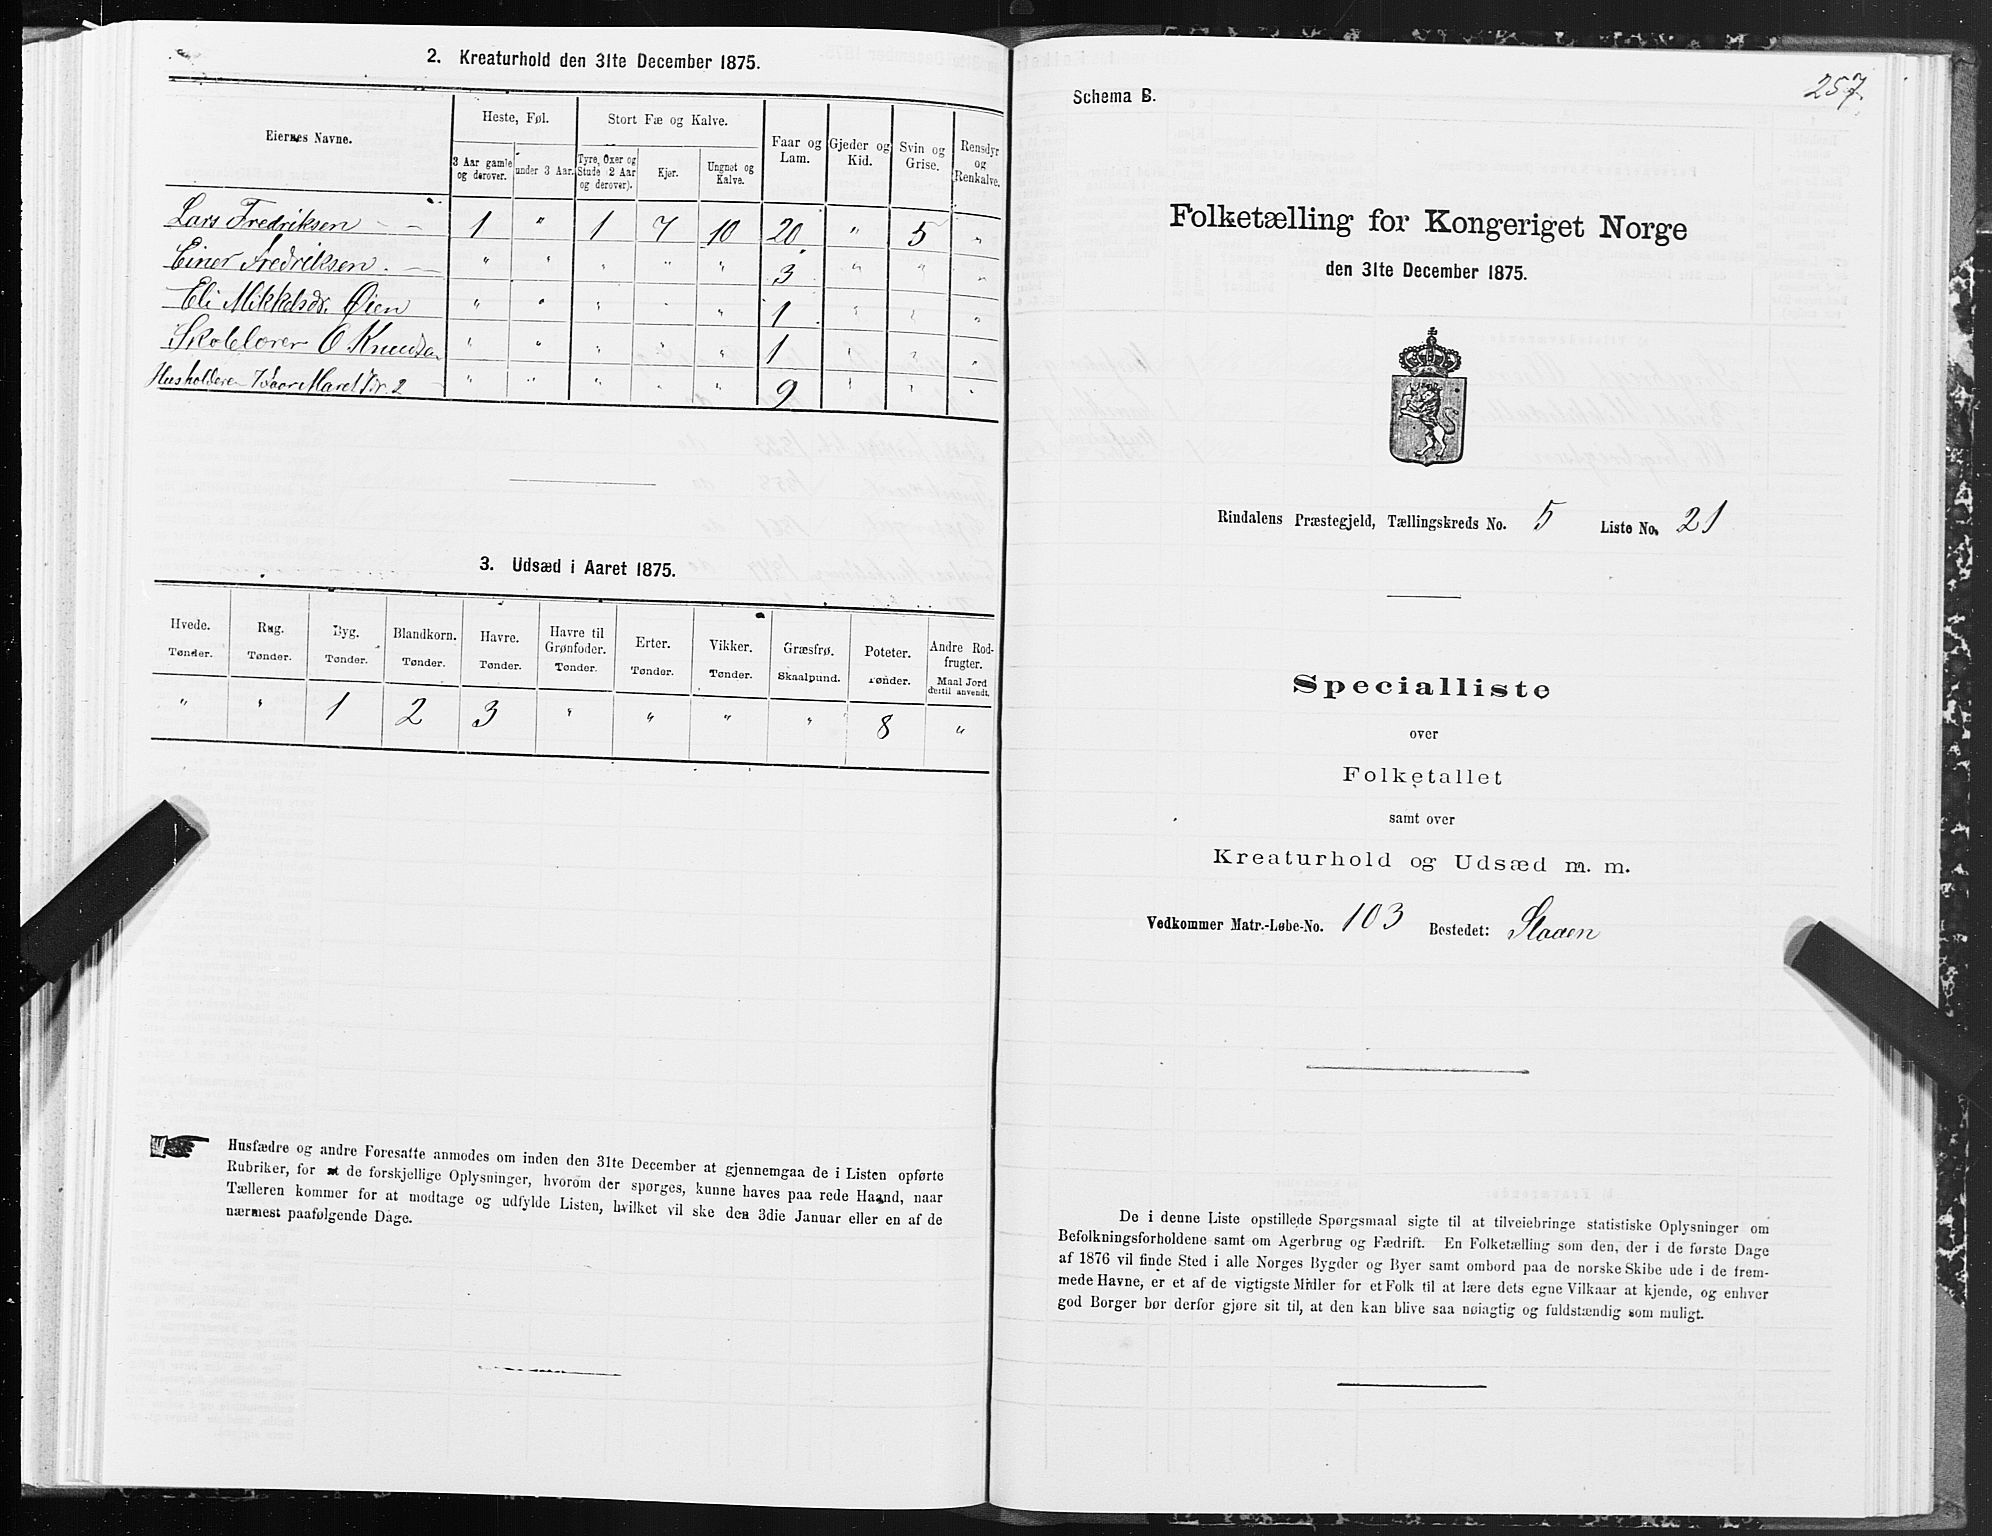 2. Kreaturhold den 31te December 1875.
Eiernes Navne.
Heste, Føl.
Stort Fæ og Kalve.
Faar og Lam.
Gjeder og Kid.
Svin og Grise.
Rensdyr og Renkalve.
3 Aar gamle og derover.
under 3 Aar.
Tyre, Oxer og Stude (2 Aar og derover).
Kjer.
Ungnet og Kalve.
Lars Fredriksen 1 " 1 7 10 20 " 5 "
Einer Fredriksen " " " " " 3 " " "
Eli Mikkelsdr. Øien " " " " " 1 " " "
Skolelærer O Knudsen " " " " " 1 " " "
Husholderen 2 " " " " " 9 " " "
3. Udsæd i Aaret 1875.
Hvede. Rug. Byg. Blandkorn. Havre. Havre til Grønfoder. Erter. Vikker. Græsfrø. Poteter. Andre Rodfrugter.
Tønder. Tønder. Tønder. Tønder. Tønder. Tønder. Tønder. Tønder. Skaalpund. Tønder. Maal Jord dertil anvendt.
" " 1 2 3 " " " " 8 "
Husfædre og andre Foresatte anmodes om inden den 31te December at gjennemgaa de i Listen opførte
Rubriker, for at de forskjellige Oplysninger, hvorom der spørges, kunne haves paa rede Haand, naar
Tælleren kommer for at modtage og udfylde Listen, hvilket vil ske den 3die Januar eller en af de
nærmest paafølgende Dage.
257.
Schema B.
Folketælling for Kongeriget Norge
den 31te December 1875.
Rindalens Præstegjeld, Tællingskreds No. 5 Liste No. 21
Specialliste
over
Folketallet
samt over
Kreaturhold og Udsæd m. m.
Vedkommer Matr.-Løbe-No. 103 Bostedet: Staaen
De i denne Liste opstillede Spørgsmaal sigte til at tilveiebringe statistiske Oplysninger om
Befolkningsforholdene samt om Agerbrug og Fædrift. En Folketælling som den, der i de første Dage
af 1876 vil finde Sted i alle Norges Bygder og Byer samt ombord paa de norske Skibe ude i de frem-
mede Havne, er et af de vigtigste Midler for et Folk til at lære dets egne Vilkaar at kjende, og enhver
god Borger bør derfor gjøre sit til, at den kan blive saa nøiagtig og fuldstændig som muligt.